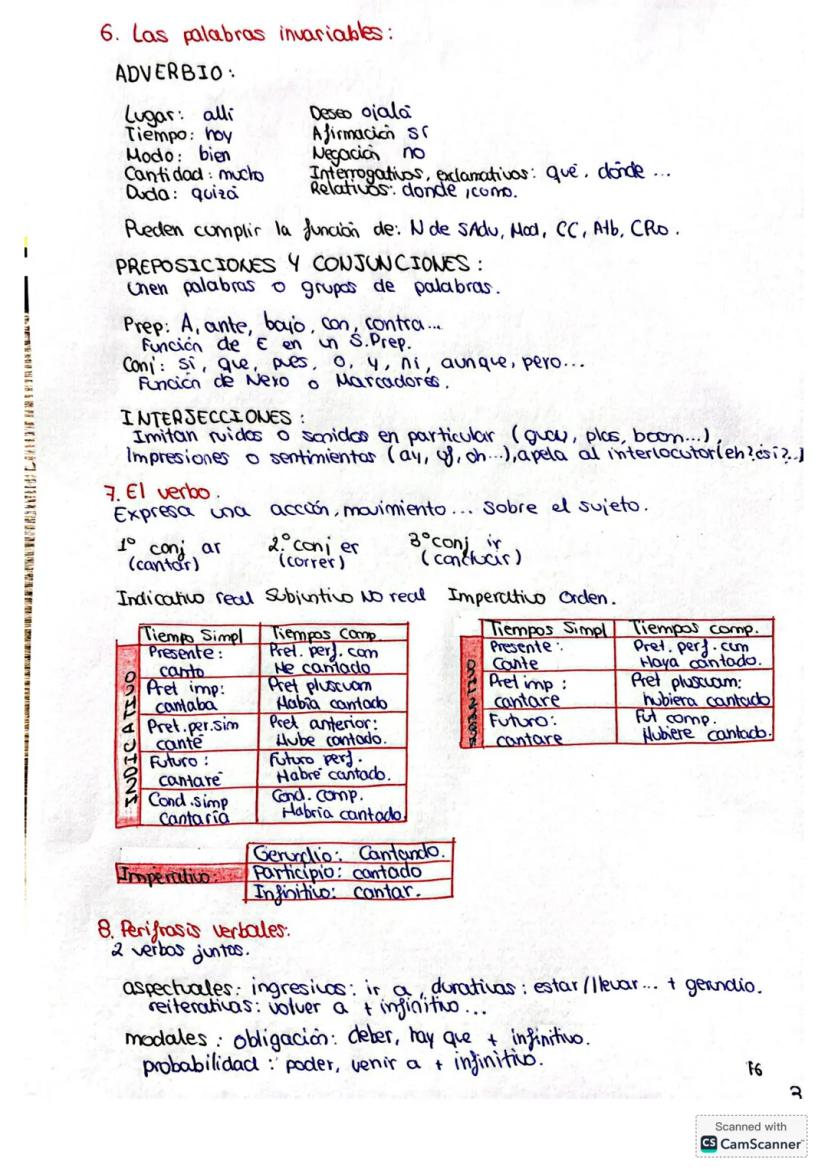 6. Las palabras invariables:
ADVERBIO:
Lugar: allí Deseo ojalá
Tiempo: hoy Afirmación sí
Modo: bien Negación no
Cantidad: mucho Interrogativos, exclamativos: qué, dónde ...
Duda: quizá Relativos: donde, como.
Pueden cumplir la función de: N de SAdv, Mod, CC, Atb, CRo.
PREPOSICIONES Y CONJUNCIONES:
Unen palabras o grupos de palabras.
Prep: A, ante, bajo, con, contra...
Función de E en un S.Prep.
Conj: si, que, pues, o, y, ni, aunque, pero...
Función de Nexo o Marcadores.
INTERJECCIONES:
Imitan ruidos o sonidos en particular (guau, plas, boom...),
Impresiones o sentimientos (ay, uf, oh...), apela al interlocutor (eh? ¿sí?..)
7. El verbo.
Expresa una acción, movimiento... sobre el sujeto.
1º conj ar 2.º conj er 3º conj ir
(cantar) (correr) (conducir)
Indicativo real Subjuntivo NO real Imperativo Orden.
INDICATIVO
Tiempo Simpl Tiempos Comp
Presente: Pret. perf. com
canto He cantado
Pret imp: Pret pluscuam
cantaba Había cantado
Pret.per.sim Pret anterior:
canté Hube cantado.
Futuro: Futuro perf.
cantaré Habré cantado.
Cond.simp Cond. comp.
Cantaría Habría cantado
Tiempos Simpl Tiempos comp.
Presente: Pret. perf. com
Cante Haya cantado.
Pret imp: Pret pluscuam:
cantare hubiera cantado
Futuro: Fut comp.
cantare Hubiere cantado.
Imperativo:
Gerundio: Cantando.
Participio: cantado
Infinitivo: cantar.
8. Perífrasis verbales:
2 verbos juntos.
aspectuales: ingresivos: ir a, durativas: estar/llevar... + gerundio.
reiterativas: volver a + infinitivo...
modales: obligación: deber, hay que + infinitivo.
probabilidad: poder, venir a + infinitivo.
F6
3
Scanned with
CS CamScanner